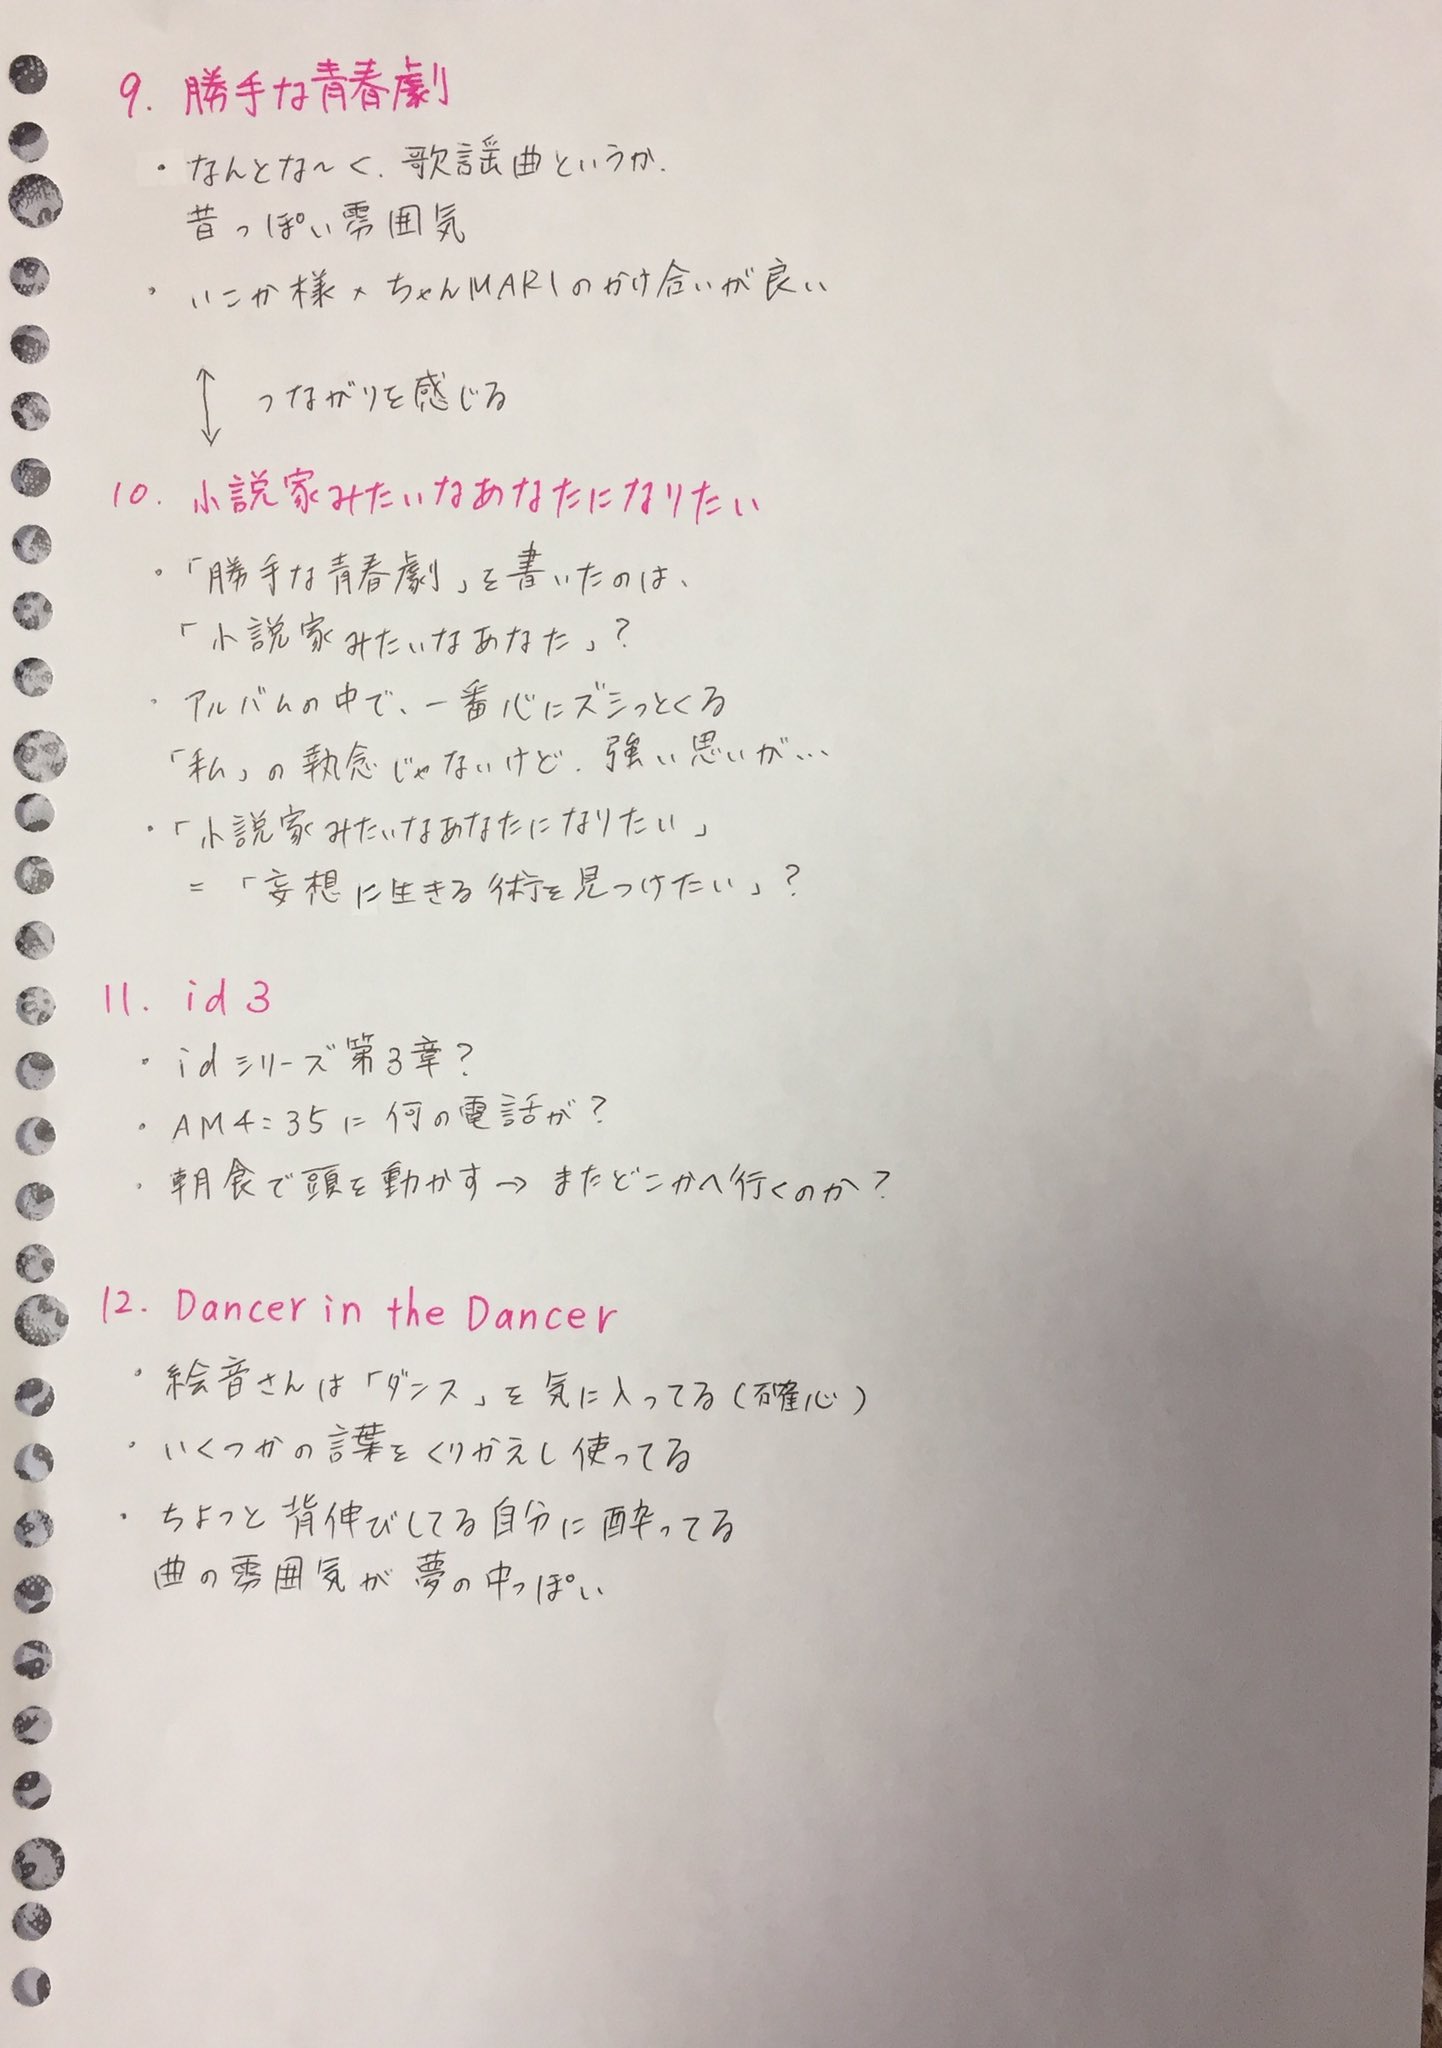 9. 勝手な青春劇
・なんとな〜く、歌謡曲というか、
昔っぽい雰囲気
・いこか様×ちゃんMARIのかけ合いが良い
↕ つながりを感じる
10. 小説家みたいなあなたになりたい
・「勝手な青春劇」を書いたのは、
「小説家みたいなあなた」?
・アルバムの中で、一番心にズシっとくる
「私」の執念じゃないけど、強い思いが…
・「小説家みたいなあなたになりたい」
=「妄想に生きる術を見つけたい」?
11. id 3
・idシリーズ第3章?
・AM4:35に何の電話が?
・朝食で頭を動かす→またどこかへ行くのか?
12. Dancer in the Dancer
・絵音さんは「ダンス」を気に入ってる(確心)
・いくつかの言葉をくりかえし使ってる
・ちょっと背伸びしてる自分に酔ってる
曲の雰囲気が夢の中っぽい